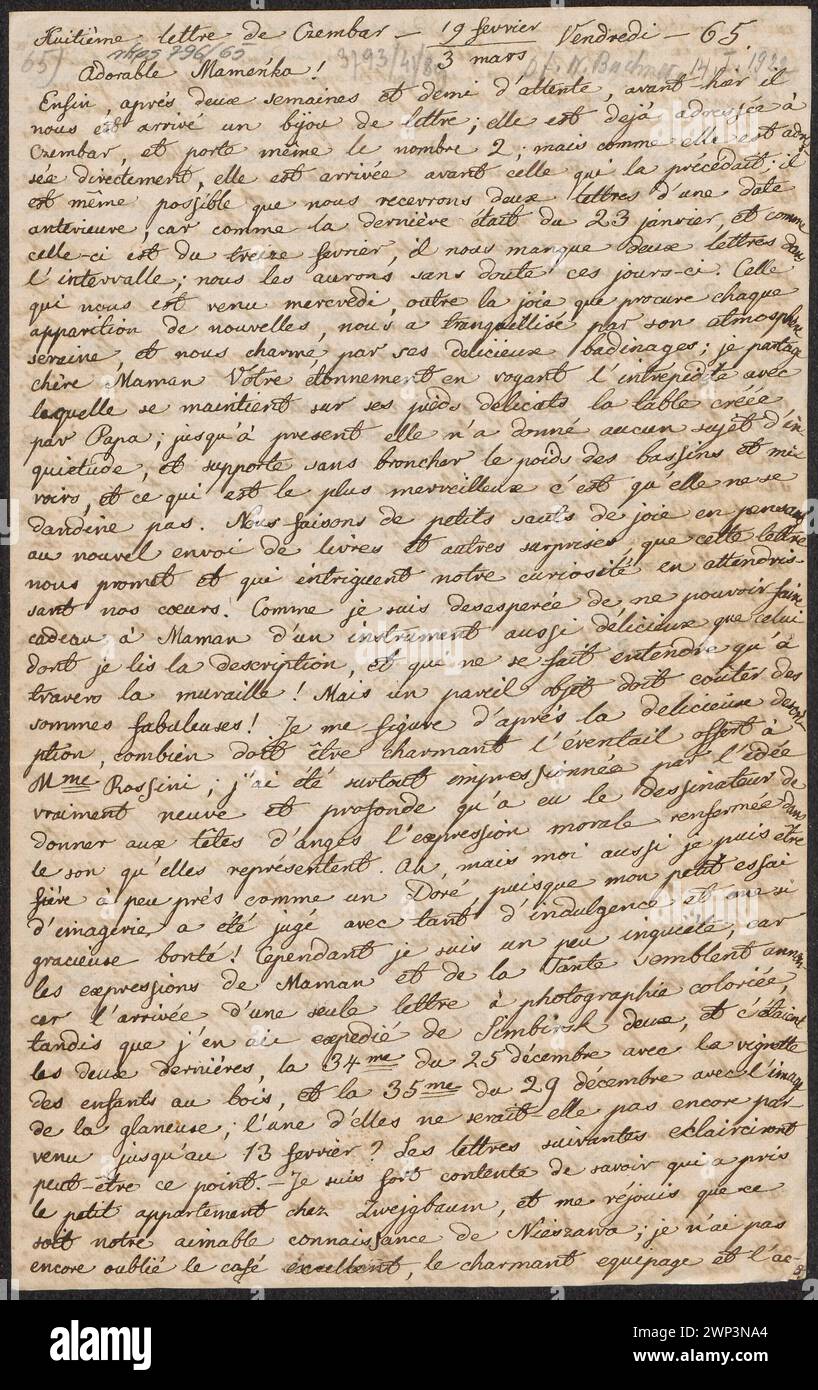 Huitième lettre de Czembar — 19 fevrier / 3 mars Vendredi — 65
rkps 796/65
65) 3793/4/8 Dr. K. Bachner 14 I. 1922
Adorable Mameńka!
Enfin, après deux semaines et demi d'attente, avant-hier il
nous est arrivé un bijou de lettre; elle est dejà adressée à
Czembar, et porte même le nombre 2; mais comme elle est adres
sée directement, elle est arrivée avant celle qui la précédait; il
est même possible que nous recevrons deux lettres d'une date
anterieure; car comme la dernière était du 23 janvier, et comme
celle-ci est du treize fevrier, il nous manque deux lettres dans
l'intervalle; nous les aurons sans doute ces jours-ci. Celle
qui nous est venu mercredi, outre la joie que procure chaque
apparition de nouvelles, nous a tranquillisé par son atmosphère
sereine, et nous charmé par ses delicieux badinages; je partage
chère Maman Votre étonnement en voyant l'intrepidité avec
laquelle se maintient sur ses pieds delicats la table créée
par Papa; jusqu'à present elle n'a donné aucun sujet d'in
quietude, et supporte sans broncher le poids des bassins et mi
roirs, et ce qui est le plus merveilleux c'est qu'elle ne se
dandine pas. Nous faisons de petits sauts de joie en pensant
au nouvel envoi de livres et autres surprises que cette lettre
nous promet et qui intriguent notre curiosité en attendris-
sant nos cœurs! Comme je suis desesperée de ne pouvoir faire
cadeau à Maman d'un instrument aussi délicieux que celui
dont je lis la description, et qui ne se fait entendre qu'à
travers la muraille! Mais un pareil objet doit coûter des
sommes fabuleuses! Je me figure d'après la delicieuse descri
ption, combien doit être charmant l'éventail offert à
Mme Rossini; j'ai été surtout impressionnée par l'idée
vraiment neuve et profonde qu'a eu le dessinateur de
donner aux têtes d'anges l'expression morale renfermée dans
le son qu'elles représentent. Ah, mais moi aussi je puis être
fière à peu près comme un Doré puisque mon petit essai
d'imagerie a été jugé avec tant d'indulgence et aussi
gracieuse bonté! Cependant je suis un peu inquiéte, car
les expressions de Maman et de la Tante semblent annon
cer l'arrivée d'une seule lettre à photographie coloriée,
tandis que j'en ai expedié de Simbirsk deux, et c'étaient
les deux dernières, la 34me du 25 décembre avec la vignette
des enfants au bois, et la 35me du 29 décembre avec l'image
de la glaneuse; l'une d'elles ne serait-elle pas encore par-
venu jusqu'au 13 fevrier? Les lettres suivantes éclairciront
peut-être ce point. — Je suis fort contente de savoir qui a pris
le petit appartement chez Zwejgbaum, et me réjouis que ce
soit notre aimable connaissance de Nieszawa; je n'ai pas
encore oublié le café excellent, le charmant equipage et l'ac-
alamy
Image ID: 2WP3NA4
www.alamy.com